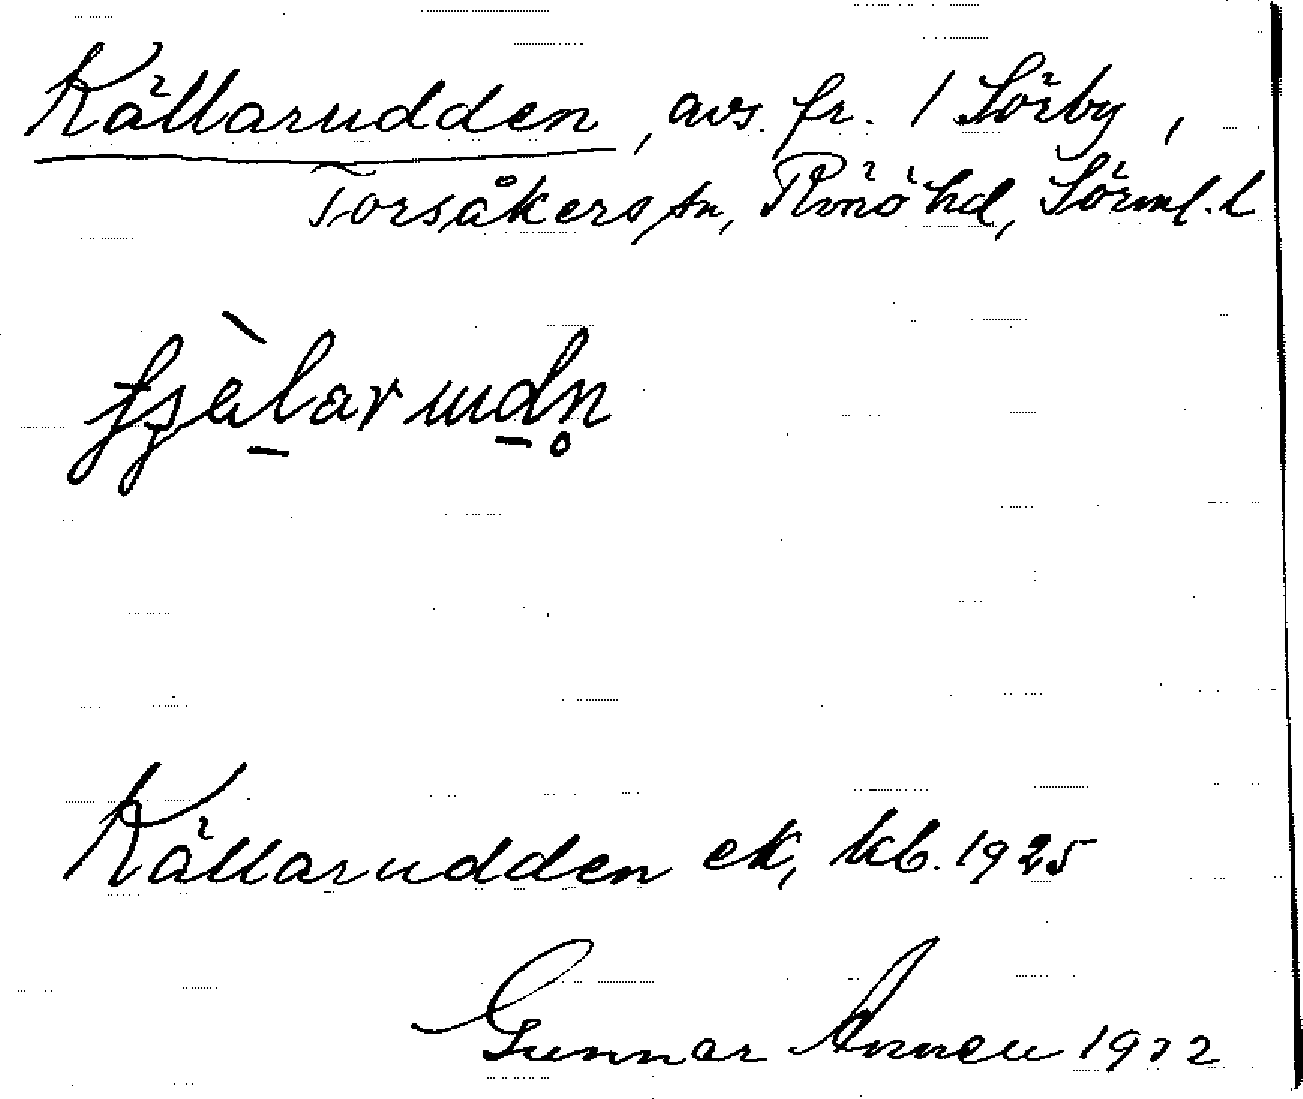 Källarudden, avs. fr. 1 Sörby,
Torsåkers sn, Rönö hd, Sörml. l
Källarudden ek, kb. 1925
Gunnar 1932